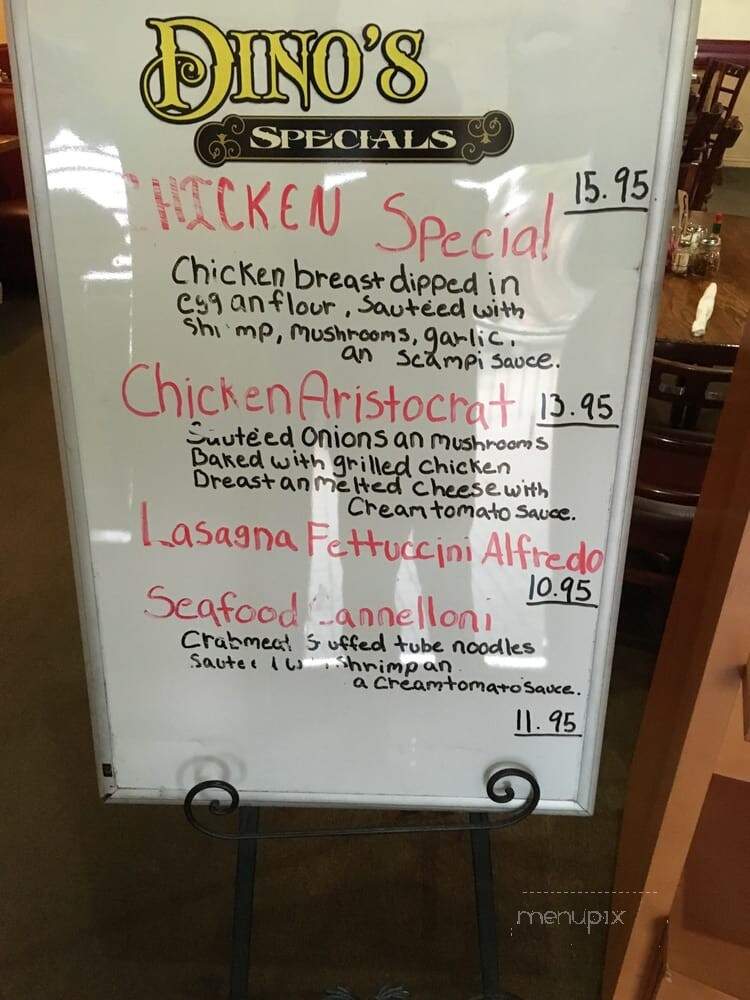 DINO'S
SPECIALS
CHICKEN Special 15.95
Chicken breast dipped in
egg an flour, Sautéed with
Shrimp, mushrooms, garlic,
an scampi sauce.
Chicken Aristocrat 13.95
Sautéed Onions an mushrooms
Baked with grilled chicken
Breast an melted cheese with
Cream tomato sauce.
Lasagna Fettuccini Alfredo
10.95
Seafood Cannelloni
Crabmeat Stuffed tube noodles
Sauteed w shrimp an
a Cream tomato sauce.
11.95
menupix